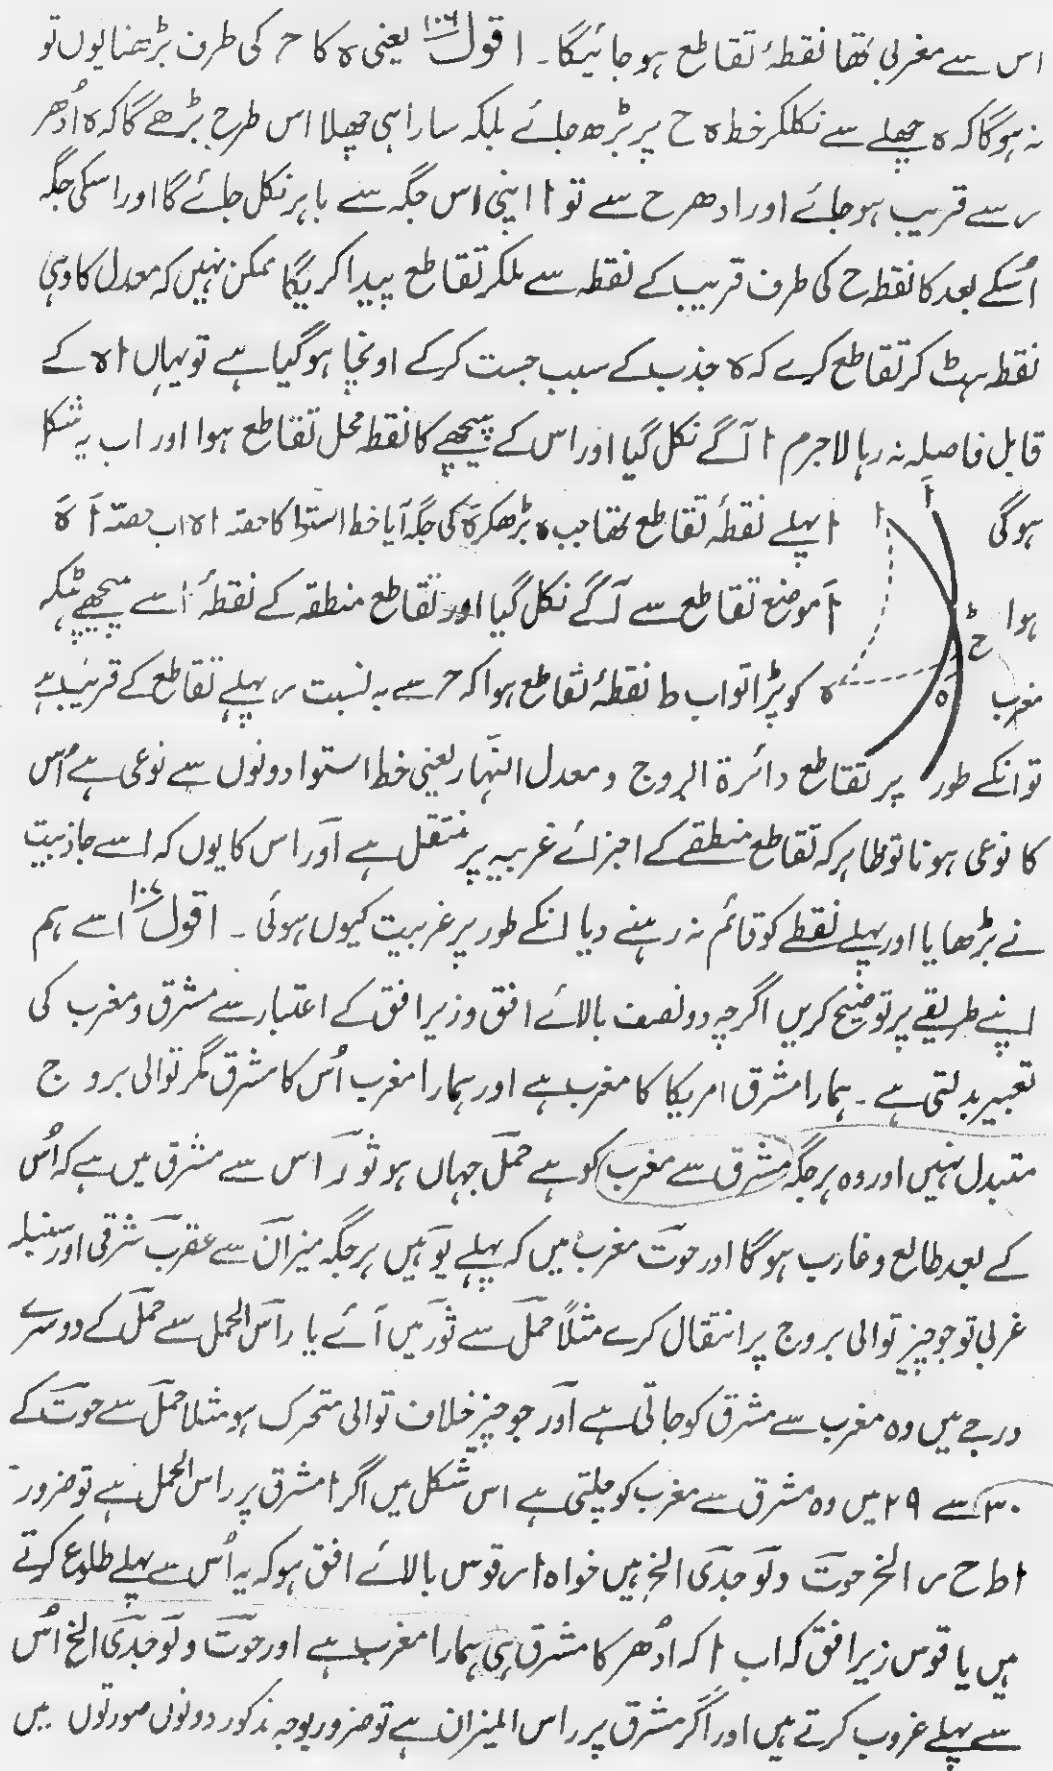 اس سے مغربی تھا نقطۂ تقاطع ہو جائیگا۔ اقول ۱۰۶ یعنی ہ کا ح کی طرف بڑھنا یوں تو
نہ ہوگا کہ ہ چھلے سے نکلکر خط ہ ح پر بڑھ جائے بلکہ سارا ہی چھلا اس طرح بڑھے گا کہ ہ اُدھر
ر سے قریب ہو جائے اور ادھر ح سے تو ا اپنی اس جگہ سے باہر نکل جائے گا اور اسکی جگہ
اُسکے بعد کا نقطہ ح کی طرف قریب کے نقطہ سے ملکر تقاطع پیدا کریگا ممکن نہیں کہ معدل کا وہی
نقطہ ہٹ کر تقاطع کرے کہ ہ جذب کے سبب جست کرکے اونچا ہو گیا ہے تو یہاں ا ہ کے
قابل فاصلہ نہ رہا لاجرم ا آگے نکل گیا اور اس کے پیچھے کا نقطہ محل تقاطع ہوا اور اب یہ شکل
ہوگی ا پہلے نقطۂ تقاطع تھا جب ہ بڑھکر ہَ کی جگہ آیا خط استوا کا حصہ ا ہ اب حصہ اَ ہَ
ہوا اَ موضع تقاطع سے آگے نکل گیا اور تقاطع منطقہ کے نقطۂ ا سے پیچھے ہٹکر
مغرب کو پڑا تو اب ط نقطۂ تقاطع ہوا کہ ح سے بہ نسبت پہلے تقاطع کے قریب ہے
تو انکے طور پر تقاطع دائرۃ البروج و معدل النہار یعنی خط استوا دونوں سے نوعی ہے اُس
کا نوعی ہونا تو ظاہر کہ تقاطع منطقے کے اجزائے غربیہ پر منتقل ہے اور اس کا یوں کہ اسے جاذبیت
نے بڑھایا اور پہلے نقطے کو قائم نہ رہنے دیا انکے طور پر غربیت کیوں ہوئی۔ اقول ۱۰۷ اسے ہم
اپنے طریقے پر توضیح کریں اگرچہ دو نصف بالائے افق و زیر افق کے اعتبار سے مشرق و مغرب کی
تعبیر بدلتی ہے۔ ہمارا مشرق امریکا کا مغرب ہے اور ہمارا مغرب اُس کا مشرق مگر توالی بروج
متبدل نہیں اور وہ ہر جگہ مشرق سے مغرب کو ہے حمل جہاں ہو ثور اس سے مشرق میں ہے کہ اُس
کے بعد طالع و غارب ہوگا اور حوت مغرب میں کہ پہلے یوہیں ہر جگہ میزان سے عقرب شرقی اور سنبلہ
غربی تو جو چیز توالی بروج پر انتقال کرے مثلاً حمل سے ثور میں آئے یا راس الحمل سے حمل کے دوسرے
درجے میں وہ مغرب سے مشرق کو جاتی ہے اور جو چیز خلاف توالی متحرک ہو مثلا حمل سے حوت کے
۳۰ سے ۲۹ میں وہ مشرق سے مغرب کو چلتی ہے اس شکل میں اگر ا مشرق پر راس الحمل ہے تو ضرور
ا ط ح ر الخ حوت دلو جدی الخ ہیں خواہ ا ر قوس بالائے افق ہو کہ یہ اُس سے پہلے طلوع کرتے
ہیں یا قوس زیر افق کہ اب ا کہ اُدھر کا مشرق ہی ہمارا مغرب ہے اور حوت و دلو جدی الخ اُس
سے پہلے غروب کرتے ہیں اور اگر مشرق پر راس المیزان ہے تو ضرور بوجہ مذکور دونوں صورتوں میں